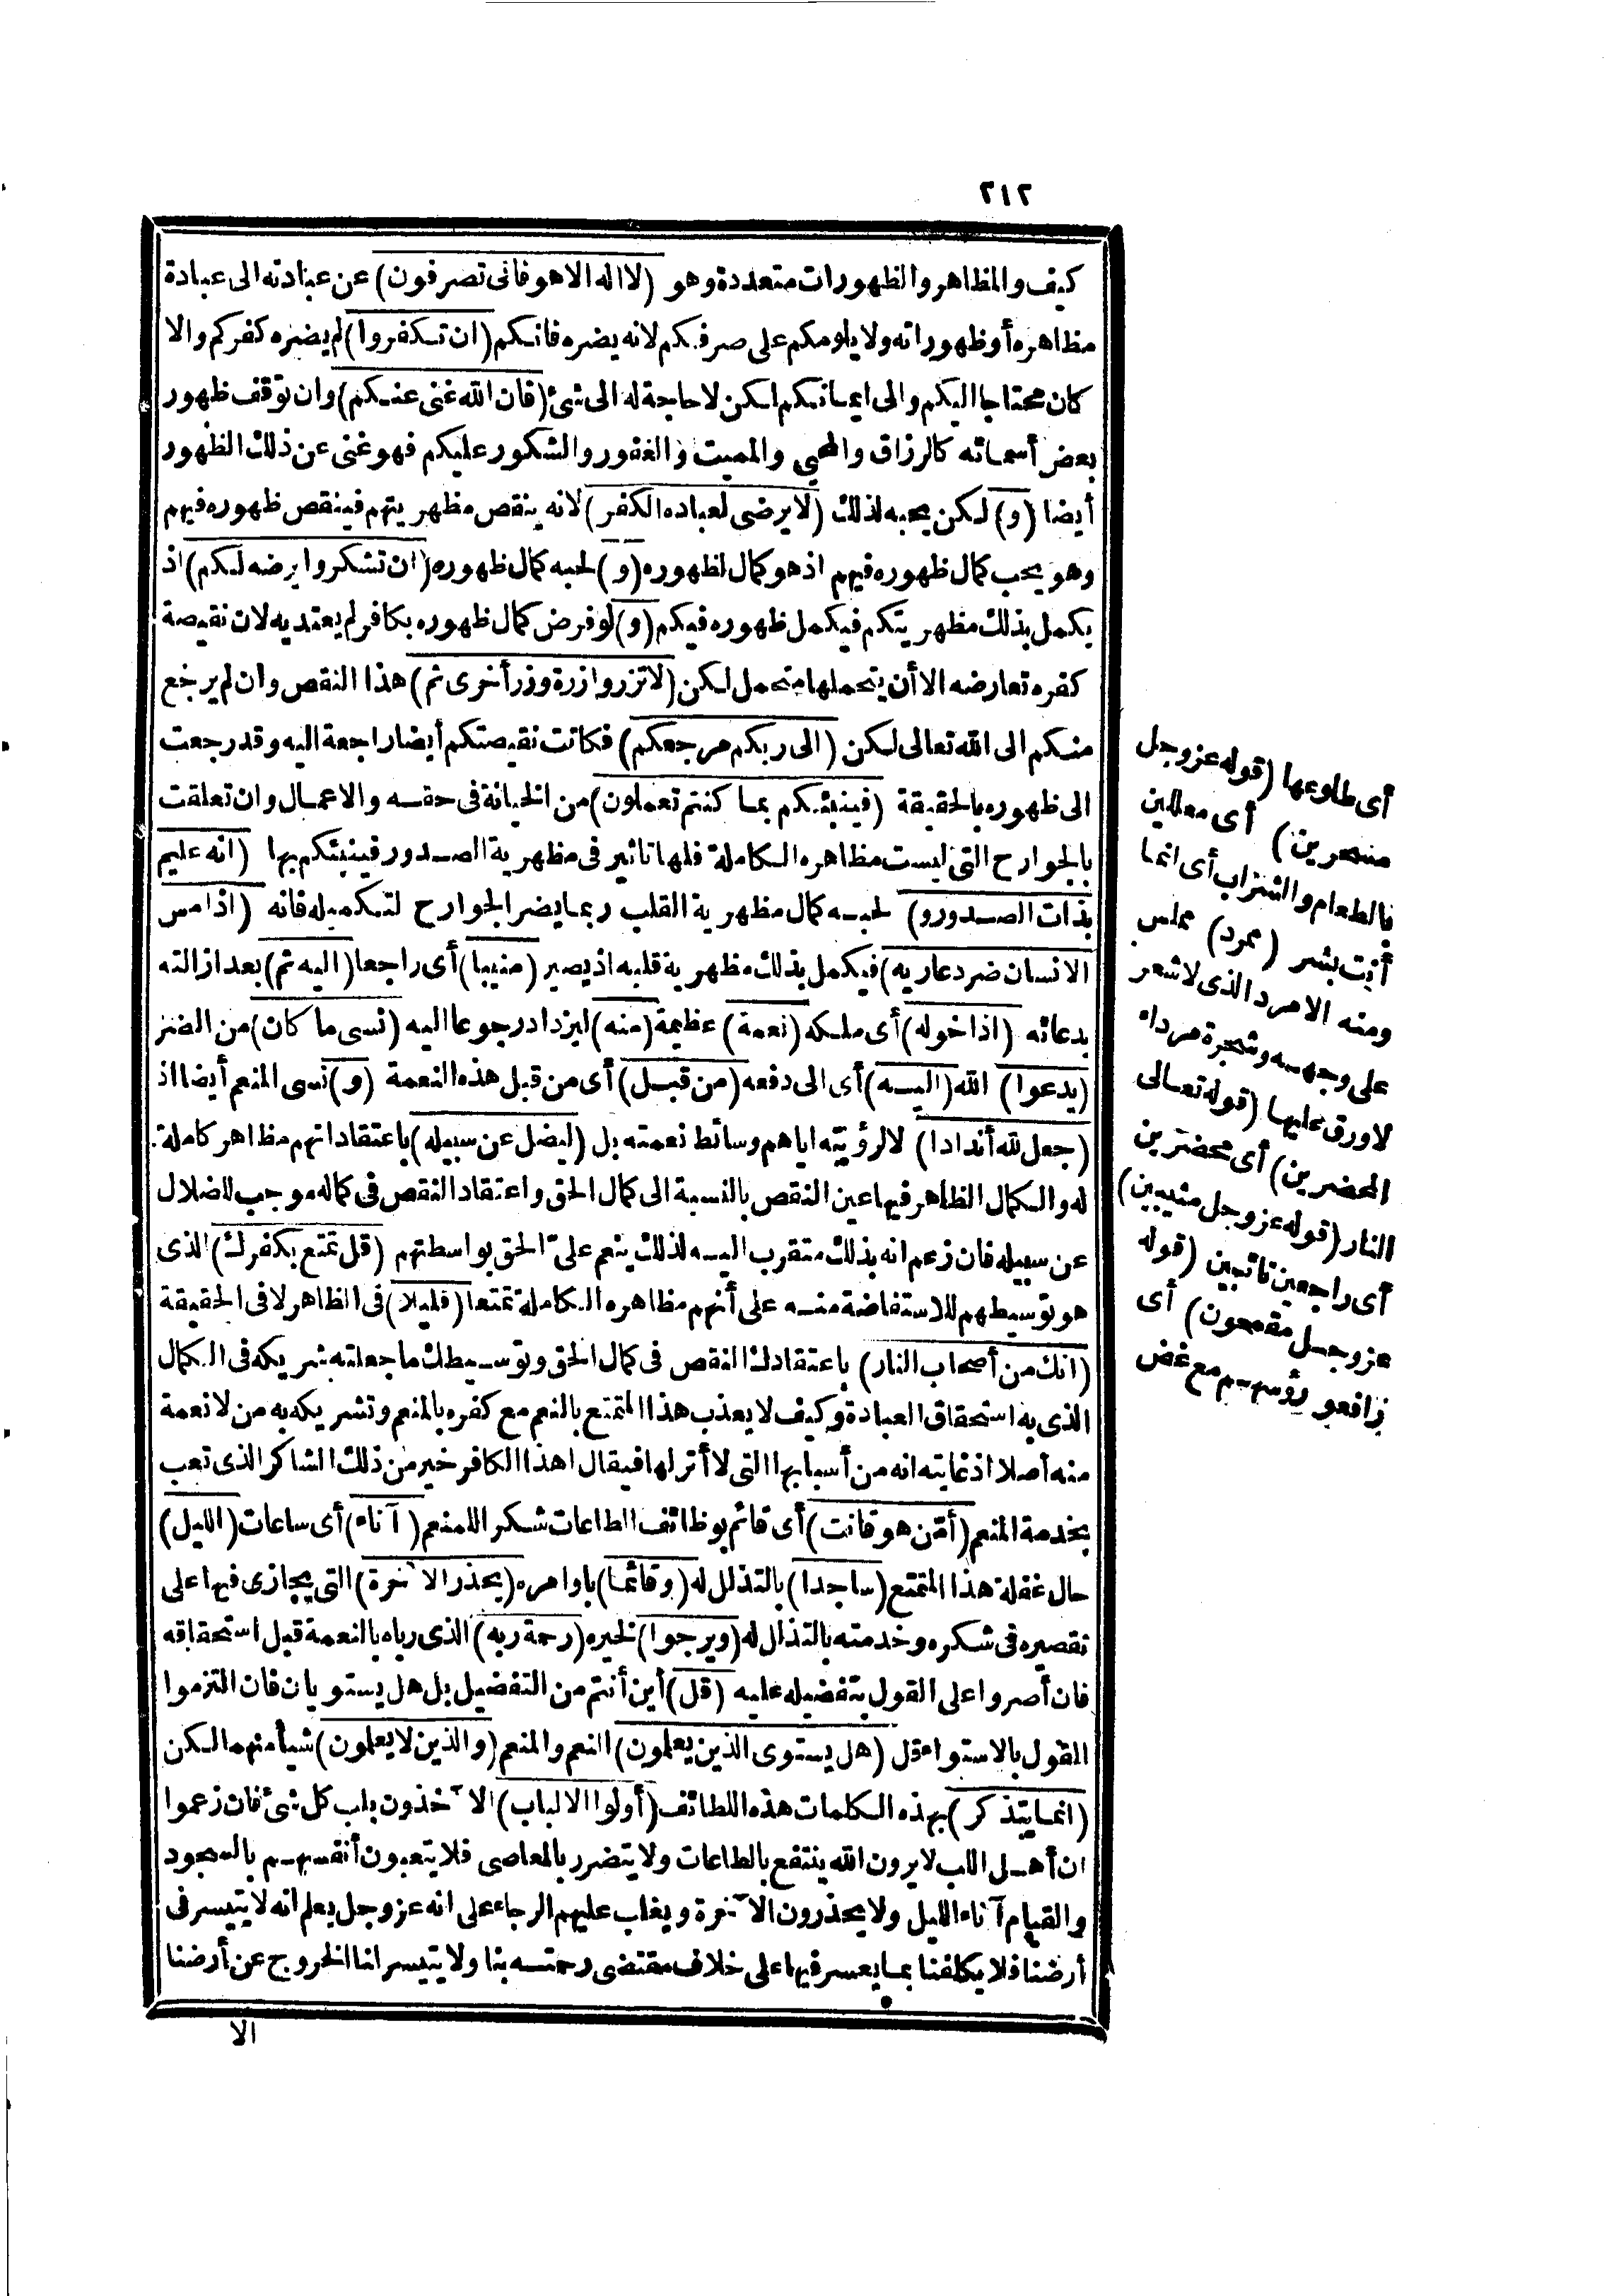 ٢١٢
كيف والمظاهر والظهورات متعددة وهو (لا اله الا هو فانى تصرفون) عن عبادته الى عبادة
مظاهره أو ظهوراته ولا يلومكم على صرفكم لانه يضره فانكم (ان تكفروا) لم يضره كفركم والا
كان محتاجا اليكم والى ايمانكم لكن لا حاجة له الى شئ (فان الله غنى عنكم) وان توقف ظهور
بعض أسمائه كالرزاق والمحيى والمميت والغفور والشكور عليكم فهو غنى عن ذلك الظهور
أيضا (و) لكن يحبه لذلك (لا يرضى لعباده الكفر) لانه ينقص مظهريتهم فينقص ظهوره فيهم
وهو يحب كمال ظهوره فيهم اذ هو كمال لظهوره (و) لحبه كمال ظهوره (ان تشكروا يرضه لكم) اذ
يكمل بذلك مظهريتكم فيكمل ظهوره فيكم (و) لو فرض كمال ظهوره بكافر لم يعتد به لان نقيصة
كفره تعارضه الا أن يتحملها متحمل لكن (لا تزر وازرة وزر أخرى ثم) هذا النقص وان لم يرجع
منكم الى الله تعالى لكن (الى ربكم مرجعكم) فكانت نقيصتكم أيضا راجعة اليه وقد رجعت
الى ظهوره بالحقيقة (فينبئكم بما كنتم تعملون) من الخيانة فى حقه والاعمال وان تعلقت
بالجوارح التى ليست مظاهره الكاملة فلها تاثير فى مظهرية الصدور فينبئكم بها (انه عليم
بذات الصدور و) لحبه كمال مظهرية القلب ربما يضر الجوارح لتكميله فانه (اذا مس
الانسان ضر دعا ربه) فيكمل بذلك مظهرية قلبه اذ يصير (منيبا) أى راجعا (اليه ثم) بعد ازالته
بدعائه (اذا خوله) أى ملكه (نعمة) عظيمة (منه) ليزداد رجوعا اليه (نسى ما كان) من الضر
(يدعوا) الله (اليه) أى الى دفعه (من قبل) أى من قبل هذه النعمة (و) نسى المنعم أيضا اذ
(جعل لله أندادا) لا لرؤيته اياهم وسائط نعمته بل (ليضل عن سبيله) باعتقاد انهم مظاهر كاملة
له والكمال الظاهر فيها عين النقص بالنسبة الى كمال الحق واعتقاد النقص فى كماله موجب للضلال
عن سبيله فان زعم انه بذلك متقرب اليه لذلك ينعم علىّ الحق بواسطتهم (قل تمتع بكفرك) الذى
هو توسيطهم للاستفاضة منه على أنهم مظاهره الكاملة تمتعا (قليلا) فى الظاهر لا فى الحقيقة
(انك من أصحاب النار) باعتقادك النقص فى كمال الحق وتوسيطك ما جعلته شريكه فى الكمال
الذى به استحقاق العبادة وكيف لا يعذب هذا المتمتع بالنعم مع كفره بالمنعم وتشريكه به من لا نعمة
منه أصلا اذ غايته انه من أسبابها التى لا أثر لها فيقال اهذا الكافر خير من ذلك الشاكر الذى تعب
بخدمة المنعم (أمّن هو قانت) أى قائم بوظائف الطاعات شكر اللمنعم (آناء) أى ساعات (الليل)
حال غفلة هذا المتمتع (ساجدا) بالتذلل له (وقائما) باوامره (يحذر الآخرة) التى يجازى فيها على
تقصيره فى شكره وخدمته بالتذلل له (ويرجوا) لخيره (رحمة ربه) الذى رباه بالنعمة قبل استحقاقه
فان أصروا على القول بتفضيله عليه (قل) أين أنتم من التفضيل بل هل يستويان فان التزموا
القول بالاستواء قل (هل يستوى الذين يعلمون) النعم والمنعم (والذين لا يعلمون) شيأ منهما لكن
(انما يتذكر) بهذه الكلمات هذه اللطائف (أولوا الالباب) الآخذون بلب كل شئ فان زعموا
ان أهل اللب لا يرون الله ينتفع بالطاعات ولا يتضرر بالمعاصى فلا يتعبون أنفسهم بالسجود
والقيام آناء الليل ولا يحذرون الآخرة ويغلب عليهم الرجاء على انه عز وجل يعلم انه لا يتيسر فى
أرضنا فلا يكلفنا بما يعسر فيها على خلاف مقتضى رحمته بنا ولا يتيسر لنا الخروج عن أرضنا
الا
أى طلوعها (قوله عز وجل
مسحرين) أى معللين
بالطعام والشراب أى انما
أنت بشر (ممرد) مملس
ومنه الامرد الذى لا شعر
على وجهه وشجرة مرداء
لا ورق عليها (قوله تعالى
المحضرين) أى محضرين
النار (قوله عز وجل منيبين)
أى راجعين تائبين (قوله
عز وجل مقمحون) أى
رافعو رؤسهم مع غض